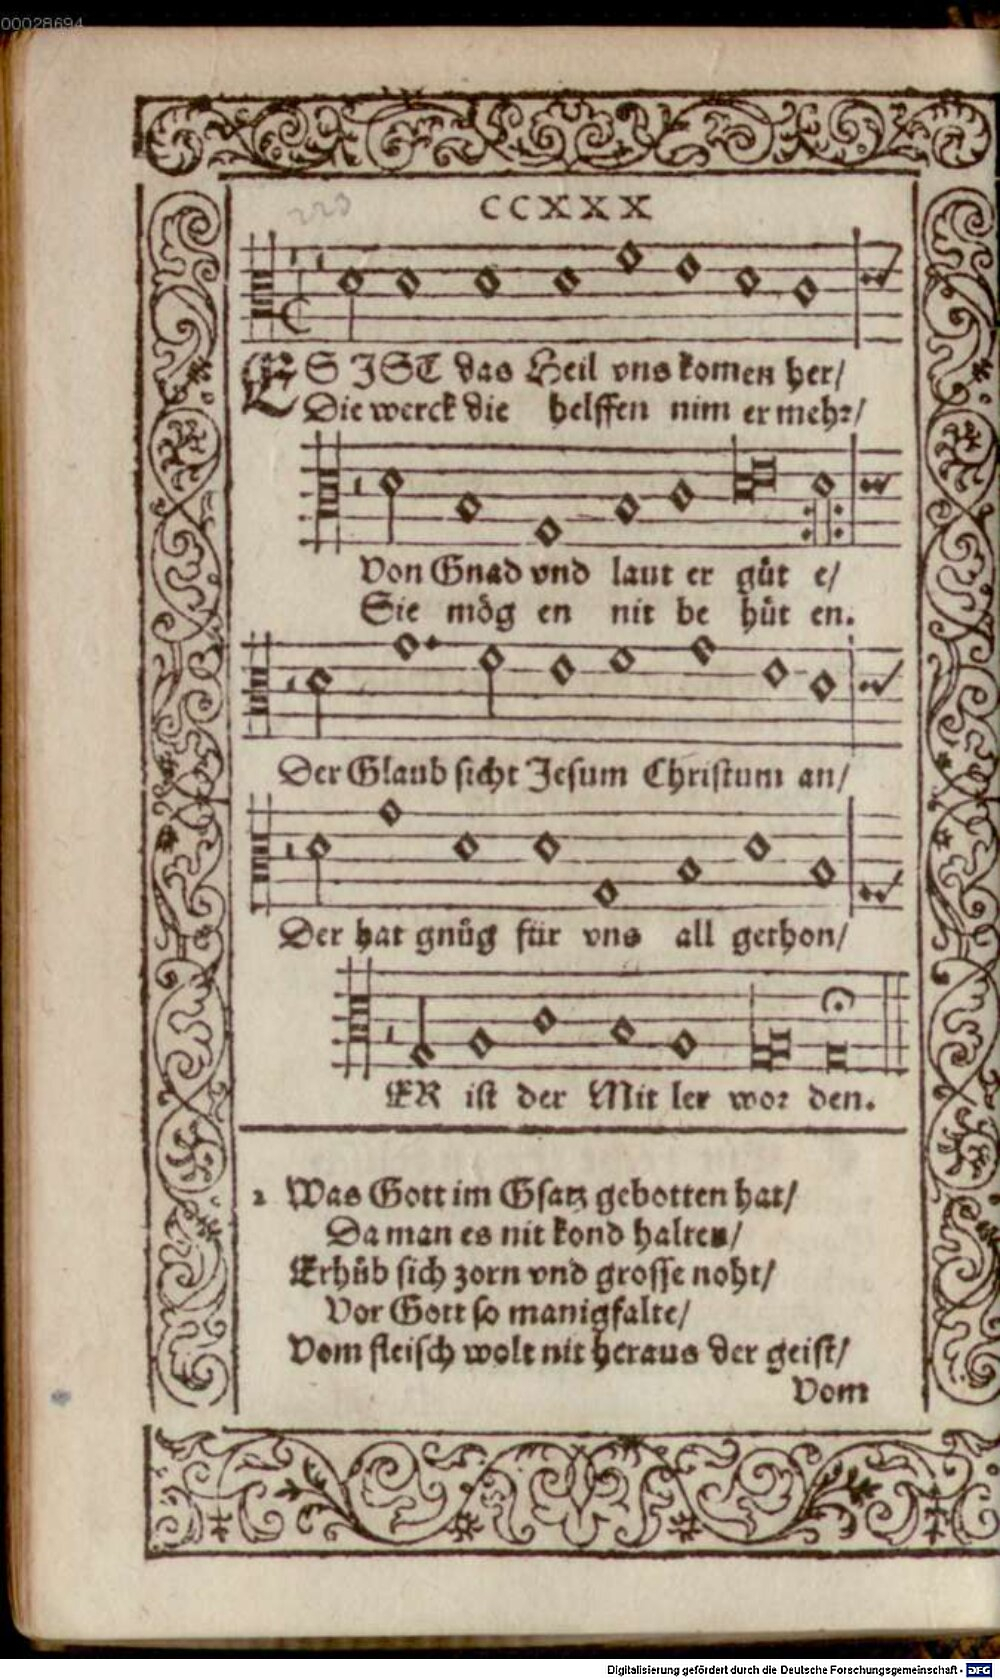 00028694
223
CCXXX
ES IST das Heil vns komen her/
Die werck die helffen nim er mehr/
Von Gnad vnd laut er gůt e/
Sie mög en nit be hůt en.
Der Glaub sicht Jesum Christum an/
Der hat gnůg für vns all gethon/
ER ist der Mit ler wor den.
2 Was Gott im Gsatz gebotten hat/
Da man es nit kond halten/
Erhůb sich zorn vnd grosse noht/
Vor Gott so manigfalte/
Vom fleisch wolt nit heraus der geist/
Vom
Digitalisierung gefördert durch die Deutsche Forschungsgemeinschaft - DFG